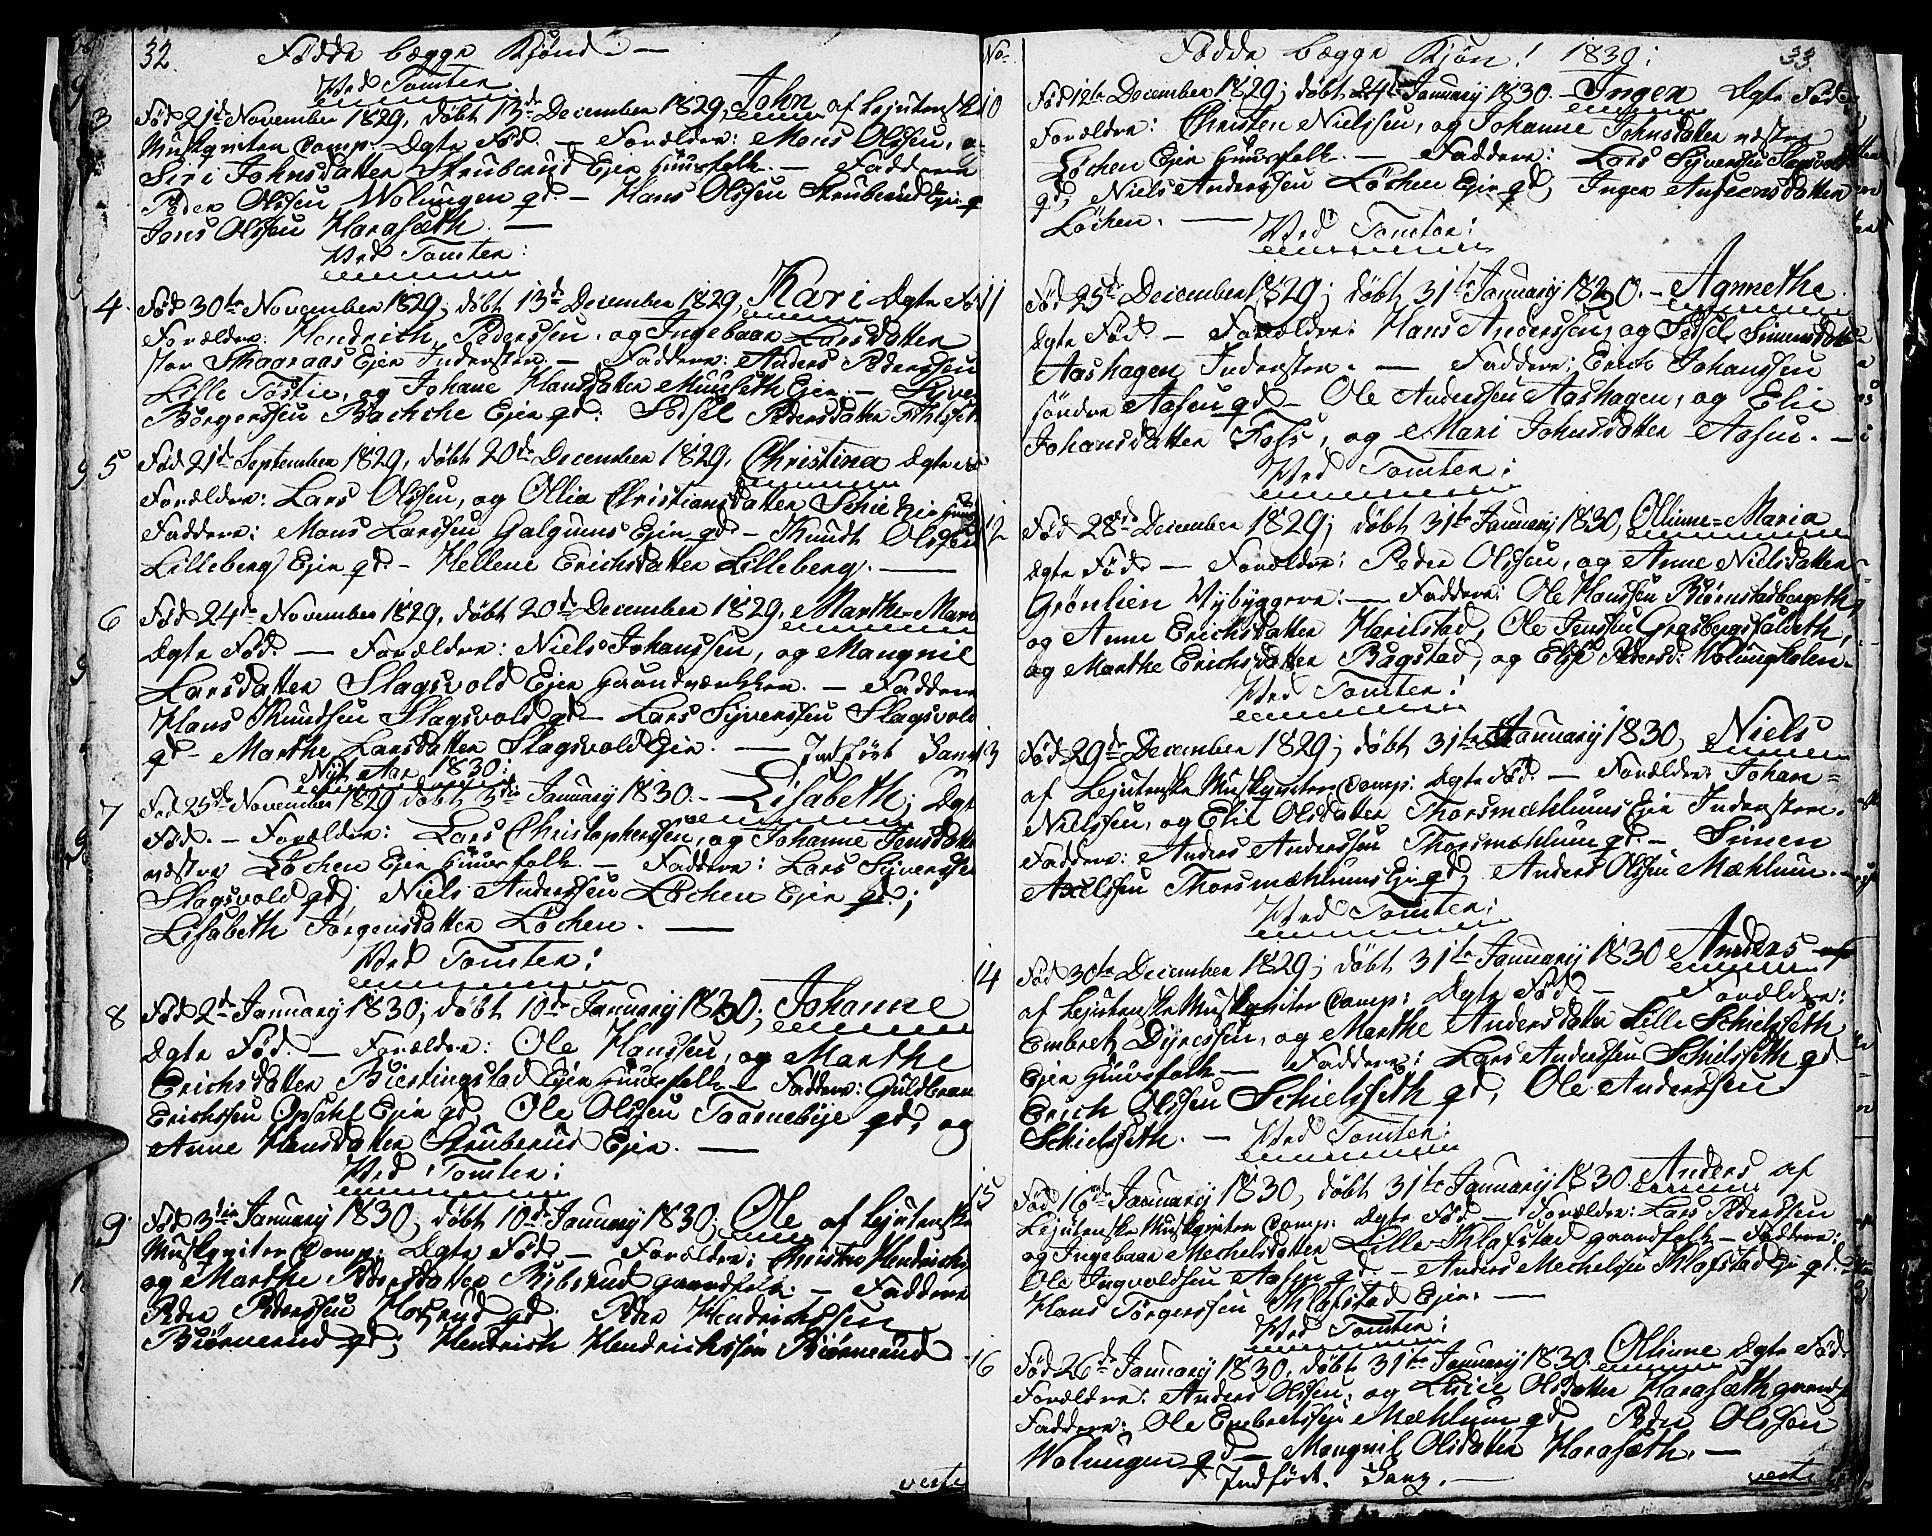 32. Födde begge Kjönd: —
Ved Tomten.
3 Fød 21de November 1829, døbt 13de December 1829, John af Lejutenske
Musqviter Comp: Dgte Fød. — Forældre: Mons Olssen, o
Siri Johnsdatter Struberud Ejer Huusfolk. — Faddere
Peder Olssen Wolungen gd. — Hans Olssen Struberud Ejer g
Jens Olssen Harasæth. —
Ved Tomten:
4. Fød 30te November 1829, døbt 13de December 1829, Kari Dgte Fød
Forældre: Hendrich Pederssen, og Ingebaar Larsdatter
stor Skaaraas Ejer Inderster. — Faddere: Anders Pederssen
Lille Tøstie, og Johane Hansdatter Muusseth Ejer — Syver
Børgerssen Bachche Ejer gd: Sidsel Pedersdatter
5 Fød 21de September 1829, døbt 20de December 1829, Christina Dgte Fød
Forældre: Lars Olssen, og Ollia Christiansdatter Schie Ejer Huus
Faddere: Mons Larssen Galgums Ejer gd — Knudt Olssen
Lilleberg Ejer gd — Hellene Erichsdatter Lilleberg. —
6 Fød 24de November 1829, døbt 20de December 1829, Marthe=Mari
Dgte Fød. — Forældre: Niels Johanssen, og Mangnil
Larsdatter Slagsvold Ejer Haandværkker. — Faddere
Hans Knudsen Slagsvold gd — Lars Syverssen Slagsvold
gd — Marthe Larsdatter Slagsvold Ejer. — Indført Sang
Nyt Aar 1830:
7 Fød 25de November 1829 døbt 3die January 1830. — Lisabeth; Dgte
Fød. — Forældre: Lars Christopherssen, og Johanne Jensdatter
østre Løchen Ejer Huusfolk. — Faddere: Lars Syverssen
Slagsvold gd; Niels Anderssen Løchen Ejer gd;
Lisabeth Jørgensdatter Løchen. —
Ved Tomten:
8 Fød 2de January 1830; døbt 10de January 1830; Johanne
Dgte Fød. — Forældre: Ole Hanssen, og Marthe
Erichsdatter Bierlingstad Ejer Huusfolk — Faddere: Guldbran
Erichssen Opsahl Ejer gd, Ole Olssen Taarnebye gd, og
Anne Hansdatter Struberud Ejer. —
Ved Tomten:
9. Fød 3die January 1830, døbt 10de January 1830; Ole af Lejutenske
Musqviter Comp: Dgte Fød. — Forældre: Christen Hendrichs
og Marthe Pedersdatter Ribsrud gaardfolk — Faddere
Peder Pederssen Horsrud gd. Peder Hendrichssen
Biørnerud gd; Hendrich Hendrichssen Biørnerud.
verte
No. Fødde begge Kjøn! 1830: 33.
10 Fød 12te December 1829; døbt 24de January 1830. — Inger Dgte Fød
Forældre: Christen Nielssen, og Johanne Johnsdatter østre
Løchen Ejer Huusfolk. — Faddere: Lars Syverssen Slagsvold
gd, Niels Anderssen Løchen Ejer gd, Inger Anfeensdatter
Løchen. —
Ved Tomten:
11 Fød 25de December 1829; døbt 31te January 1830. — Agnnethe
Dgte Fød — Forældre: Hans Anderssen, og Sidsel Simensdatter
Aashagen Inderster. — Faddere: Erich Johanssen
søndre Aasen gd — Ole Anderssen Aashagen, og Elie
Johansdatter Foss, og Mari Johnsdatter Aasen. —
Ved Tomten:
12 Fød 28de December 1829; døbt 31te January 1830, Ollinne=Maria
Dgte Fød — Forældre: Peder Olssen, og Anne Nielsdatter
Grønlien Nybyggere: — Faddere: Ole Hanssen Biørnstadberget
og Anne Erichsdatter Harilstad, Ole Jenssen Grasbergsfaldeth,
og Marthe Erichsdatter Bagstad, og Else Pedersd: Wolungholen
Ved Tomten:
13 Fød 29de December 1829; døbt 31te January 1830, Niels
af Lejutenske Musqviter Comp: Dgte Fød. — Forældre Johan=
Nielssen, og Elie Olsdatter Thorsmæhlums Ejer Inderster.
Faddere: Anders Anderssen Thorsmæhlum gd. — Simen
Axelssen Thorsmæhlums Ejer gd, Anders Olssen Mæhlum. —
Ved Tomten:
14 Fød 30te December 1829; døbt 31te January 1830 Anders af
af Lejutenske Musqviter Comp: Dgte Fød — Forældre:
Embret Dyressen, og Marthe Andersdatter Lille Schielsseth
Ejer Huusfolk — Faddere: Lars Anderssen Schielsseth gd
Erich Olssen Schielsseth gd, Ole Anderssen
Schielsseth. —
Ved Tomten:
15 Fød 16de January 1830, døbt 31te January 1830. Anders af
Lejutenske Musqviter Comp: Dgte Fød — Forældre: Lars Pederssen
og Ingebaar Mechelsdatter Lille=Klafstad gaardfolk — Faddere:
Ole Ingvoldsen Aasen gd — Anders Mechelsen Klafstad Ejer gd
Hans Børgerssen Klafstad Ejer. —
Ved Tomten:
16 Fød 26de January 1830, døbt 31te January 1830. Ollinne Dgte Fød.
Forældre: Anders Olssen, og Lucie Olsdatter Harasæth gaardf
Faddere: Ole Embretssen Mæhlum gd Peder Olssen
Wolungen gd — Mangnil Olsdatter Harasæth. —
Indført Sang. —
verte